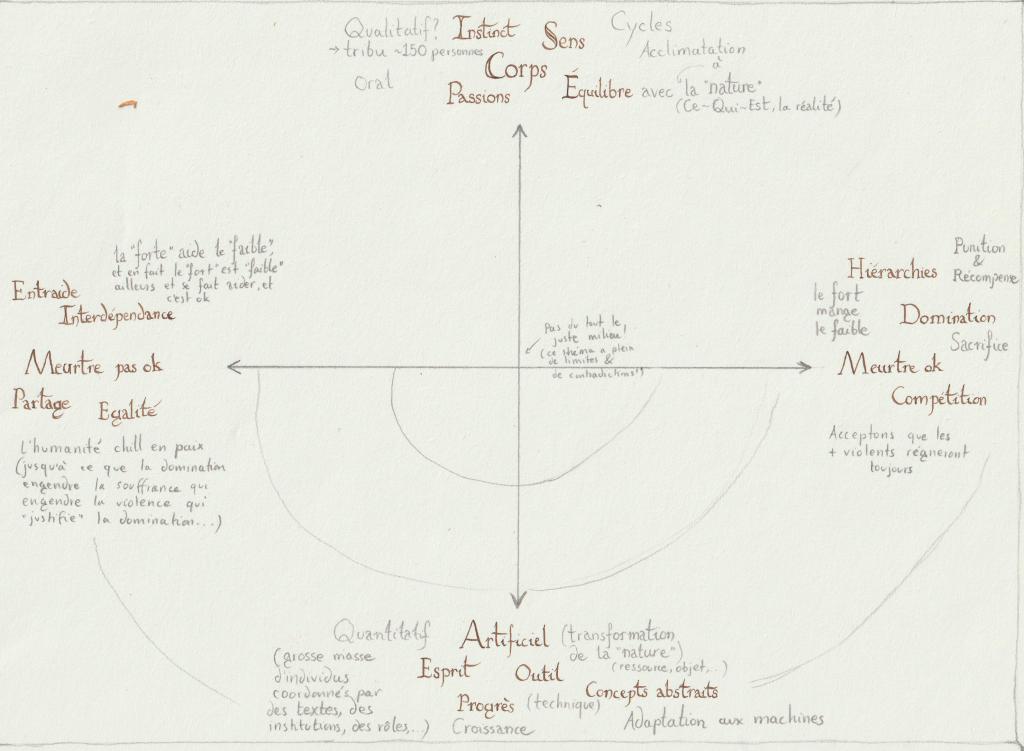 Qualitatif?
→ tribu ~150 personnes
Oral
Instinct
Sens
Corps
Passions
Cycles
Acclimatation
à
Équilibre avec "la "nature"
(Ce~Qui~Est, la réalité)
la "forte" aide le "faible",
et en fait le "fort" est "faible"
ailleurs et se fait aider, et
c'est ok
Entraide
Interdépendance
Meurtre pas ok
Partage
Egalité
L'humanité chill en paix
(jusqu'à ce que la domination
engendre la souffrance qui
engendre la violence qui
"justifie" la domination...)
Pas du tout le
juste milieu!
(ce shéma a plein
de limites &
de contradictions!)
Punition
&
Récompense
Hiérarchies
le fort
mange
le faible
Domination
Sacrifice
Meurtre ok
Compétition
Acceptons que les
+ violents règneront
toujours
Quantitatif
(grosse masse
d'individus
coordonnés par
des textes, des
institutions, des rôles,...)
Artificiel (transformation
de la "nature")
(ressource, objet,..)
Esprit
Outil
Concepts abstraits
Progrès (technique)
Croissance
Adaptation aux machines